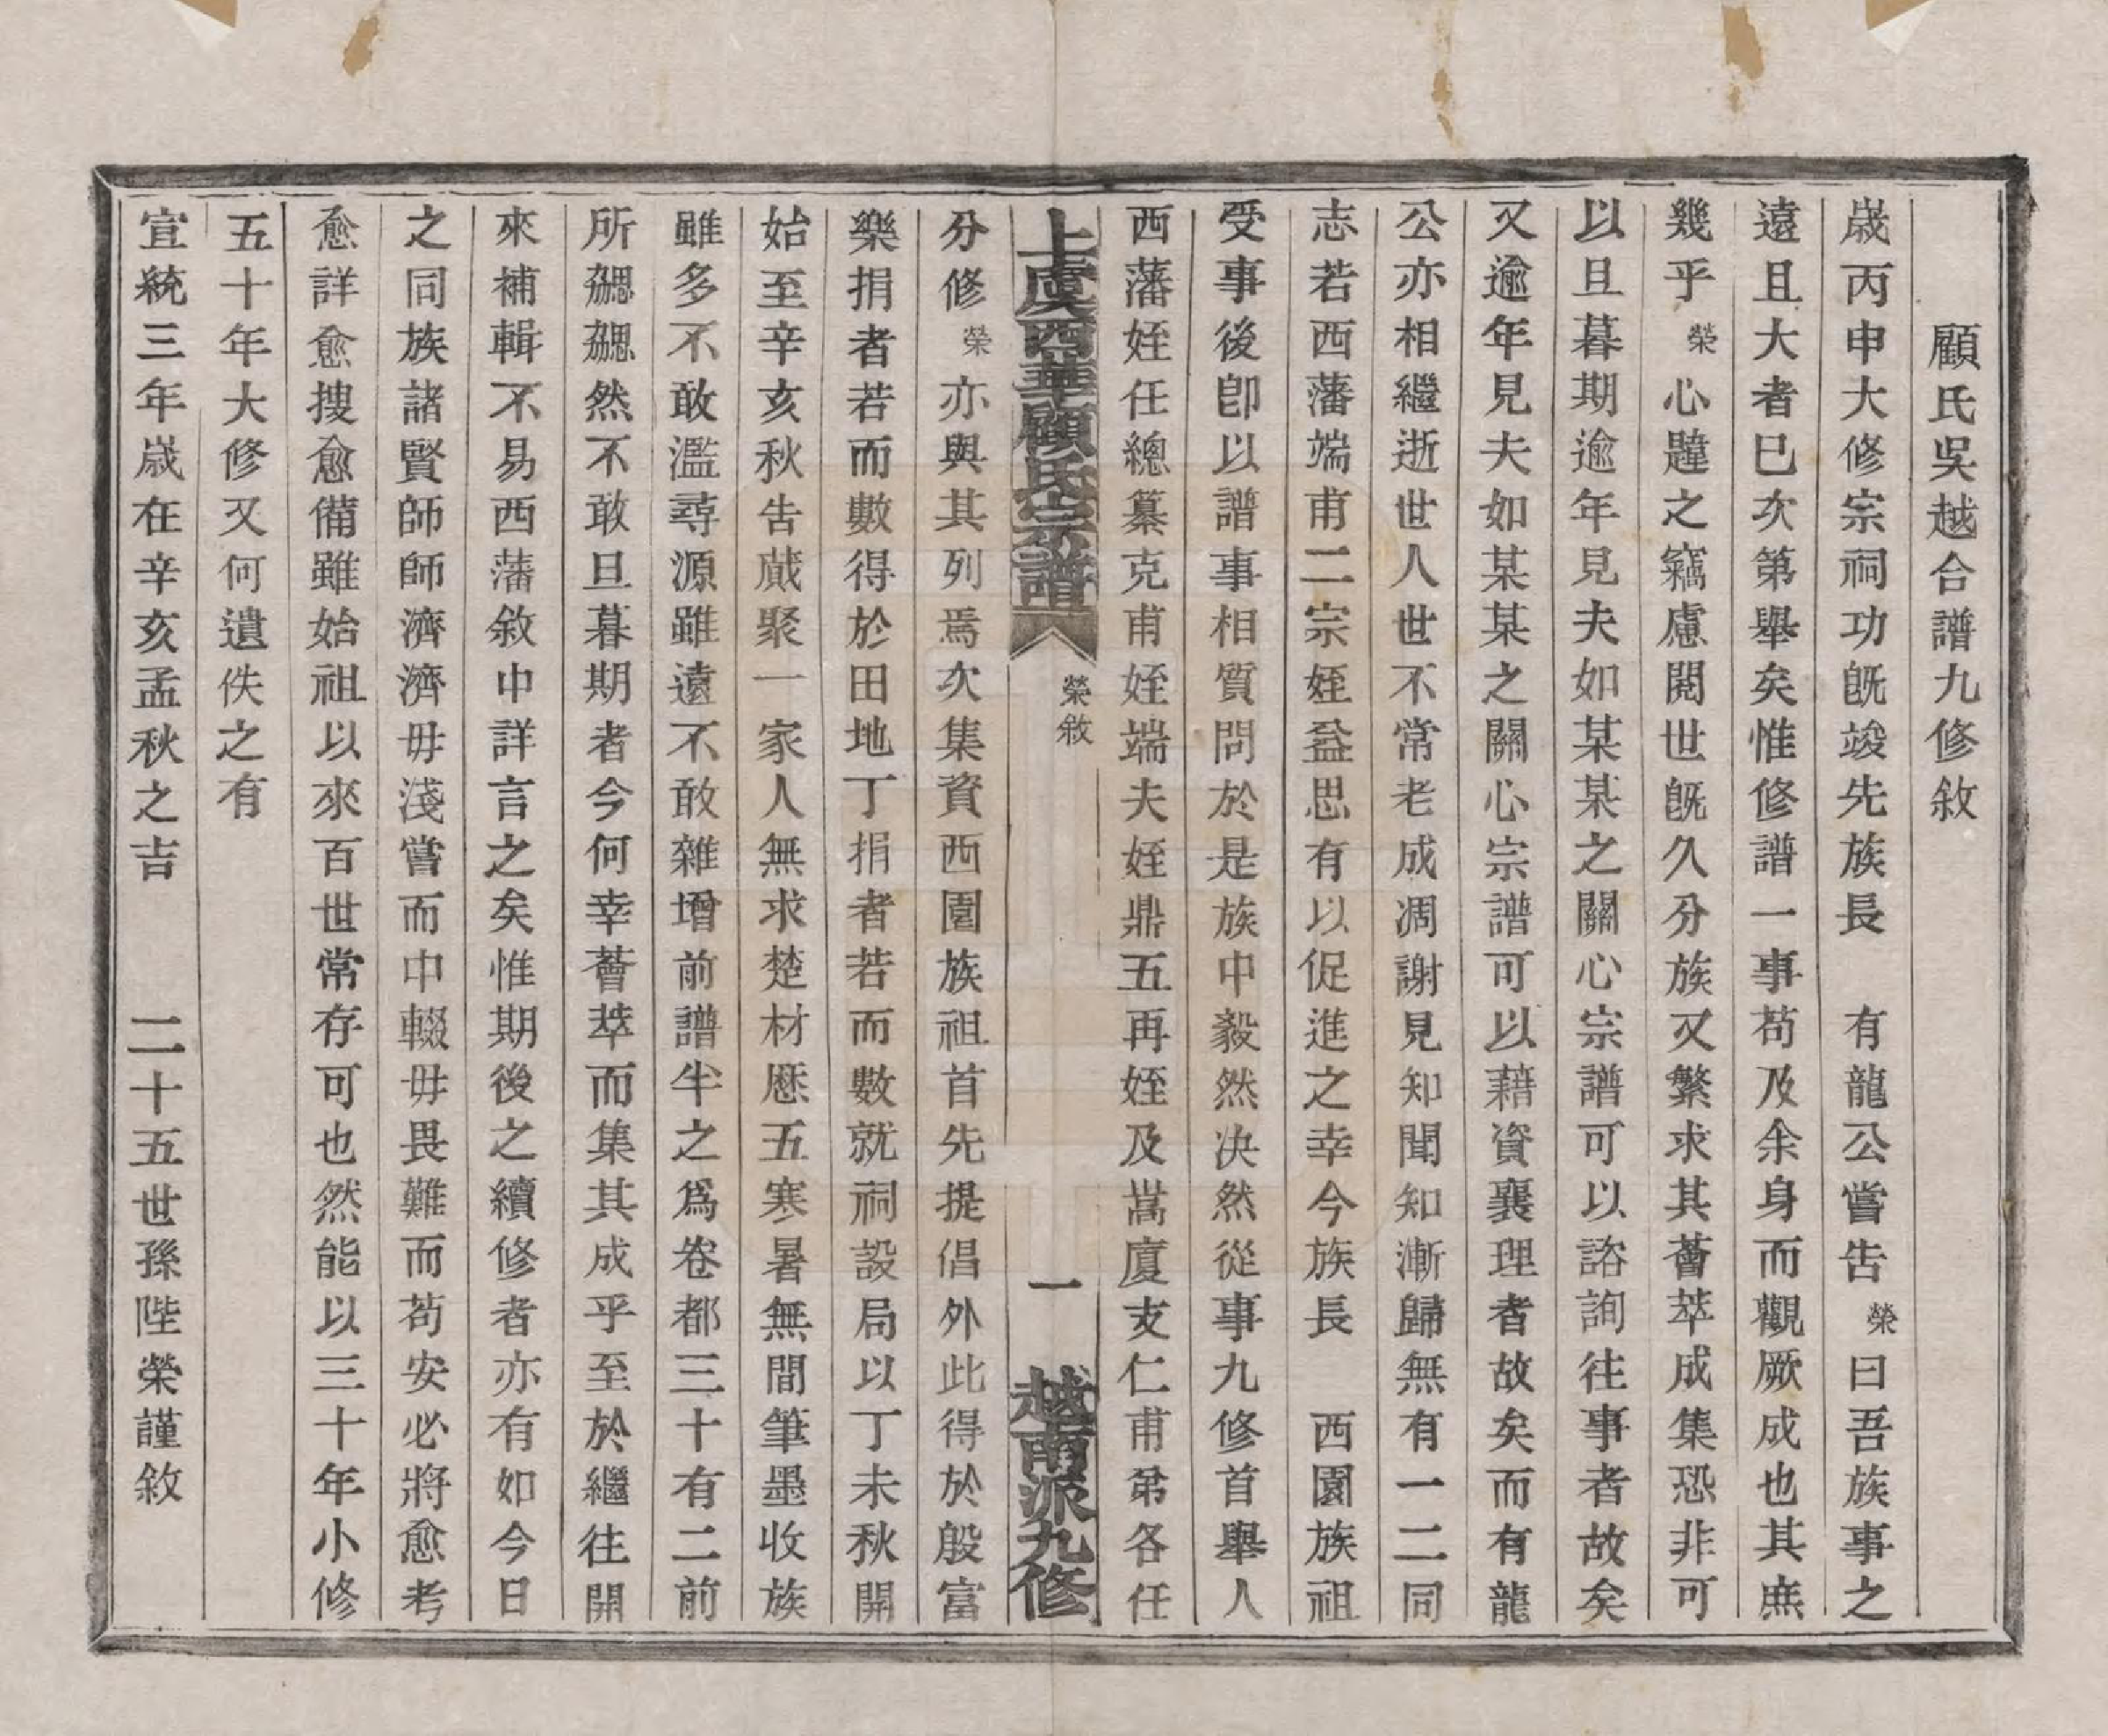 顧氏吳越合譜九修敘
歲丙申大修宗祠功旣竣先族長　有龍公嘗告榮曰吾族事之
遠且大者巳次第舉矣惟修譜一事苟及余身而觀厥成也其庶
幾乎榮心韙之竊慮閱世旣久分族又繁求其薈萃成集恐非可
以旦暮期逾年見夫如某某之關心宗譜可以諮詢往事者故矣
又逾年見夫如某某之關心宗譜可以藉資襄理者故矣而有龍
公亦相繼逝世人世不常老成凋謝見知聞知漸歸無有一二同
志若西藩端甫二宗姪益思有以促進之幸今族長　西園族祖
受事後卽以譜事相質問於是族中毅然決然從事九修首舉人
西藩姪任總纂克甫姪端夫姪鼎五再姪及嵩廈支仁甫弟各任
上虞西華顧氏宗譜　榮敘　一　越南派九修
分修榮亦與其列焉次集資西園族祖首先提倡外此得於殷富
樂捐者若而數得於田地丁捐者若而數就祠設局以丁未秋開
始至辛亥秋告蕆聚一家人無求楚材歷五寒暑無間筆墨收族
雖多不敢濫尋源雖遠不敢雜增前譜半之爲卷都三十有二前
所勰勰然不敢旦暮期者今何幸薈萃而集其成乎至於繼往開
來補輯不易西藩敘中詳言之矣惟期後之續修者亦有如今日
之同族諸賢師師濟濟毋淺嘗而中輟毋畏難而苟安必將愈考
愈詳愈搜愈備雖始祖以來百世常存可也然能以三十年小修
五十年大修又何遺佚之有
宣統三年歲在辛亥孟秋之吉　　二十五世孫陛榮謹敘